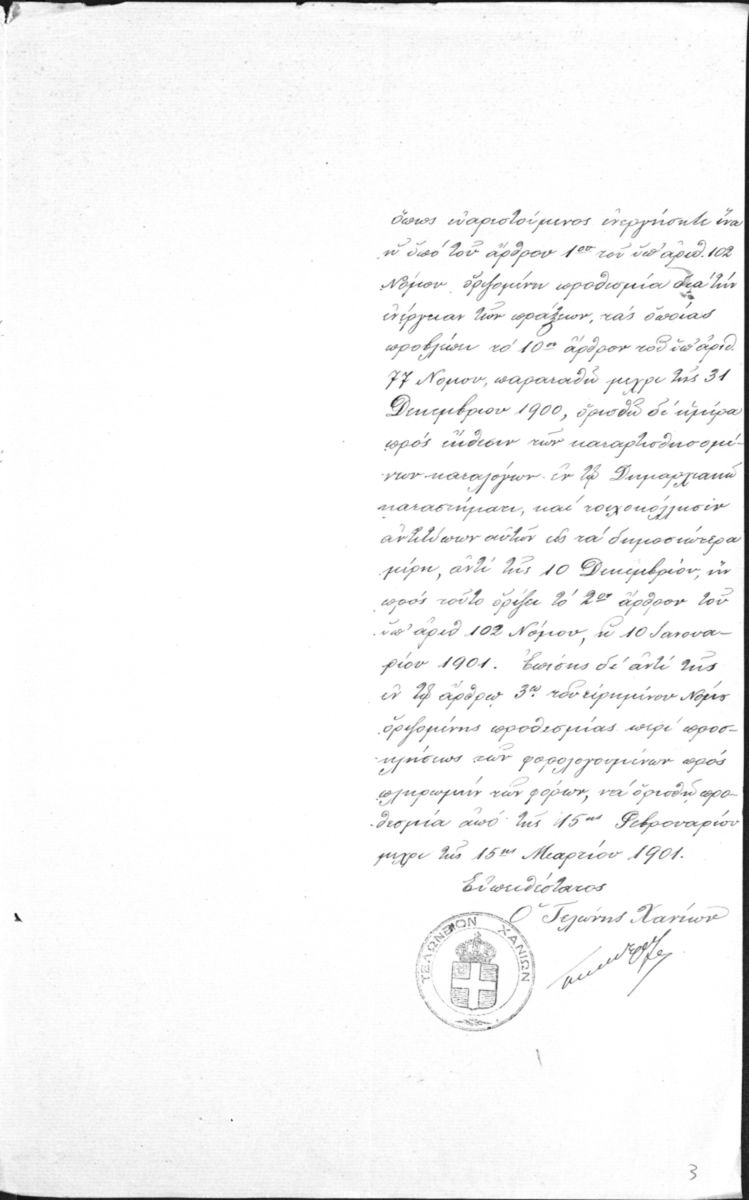 ὅπως εὐαρεστούμενος ἐνεργήσητε ἵνα
ἡ ὑπό τοῦ ἄρθρου 1ου τοῦ ὑπ' ἀριθ. 102
Νόμου ὁριζομένη προθεσμία διά τήν
ἐνέργειαν τῶν πράξεων, τάς ὁποίας
προβλέπει τό 10ον ἄρθρον τοῦ ὑπ' ἀριθ.
77 Νόμου, παραταθῇ μεχρι τῆς 31
Δεκεμβρίου 1900, ὁρισθῇ δέ ἡμέρα
πρός ἔκθεσιν τῶν καταρτισθησομέ-
νων καταλόγων ἐν τῷ Δημαρχιακῷ
καταστήματι, καί τοιχοκόλλησιν
ἀντιτύπων αὐτῶν εἰς τά δημοσιώτερα
μέρη, ἀντί τῆς 10 Δεκεμβρίου, ἥν
πρός τοῦτο ὁρίζει τό 2ον ἄρθρον τοῦ
ὑπ' ἀριθ 102 Νόμου, ἡ 10 Ιανουα-
ρίου 1901. Ἐπίσης δέ ἀντί τῆς
ἐν τῷ ἄρθρῳ 3ῳ τοῦ εἰρημένου Νόμου
ὁριζομένης προθεσμίας περί προσ-
κλήσεως τῶν φορολογουμένων πρός
πληρωμήν τῶν φόρων, νά ὁρισθῇ προ-
θεσμία ἀπό τῆς 15ης Φεβρουαρίου
μεχρι τῆς 15ης Μαρτίου 1901.
Εὐπειθέστατος
Ὁ Τελώνης Χανίων
ΤΕΛΩΝΕΙΟΝ ΧΑΝΙΩΝ
3